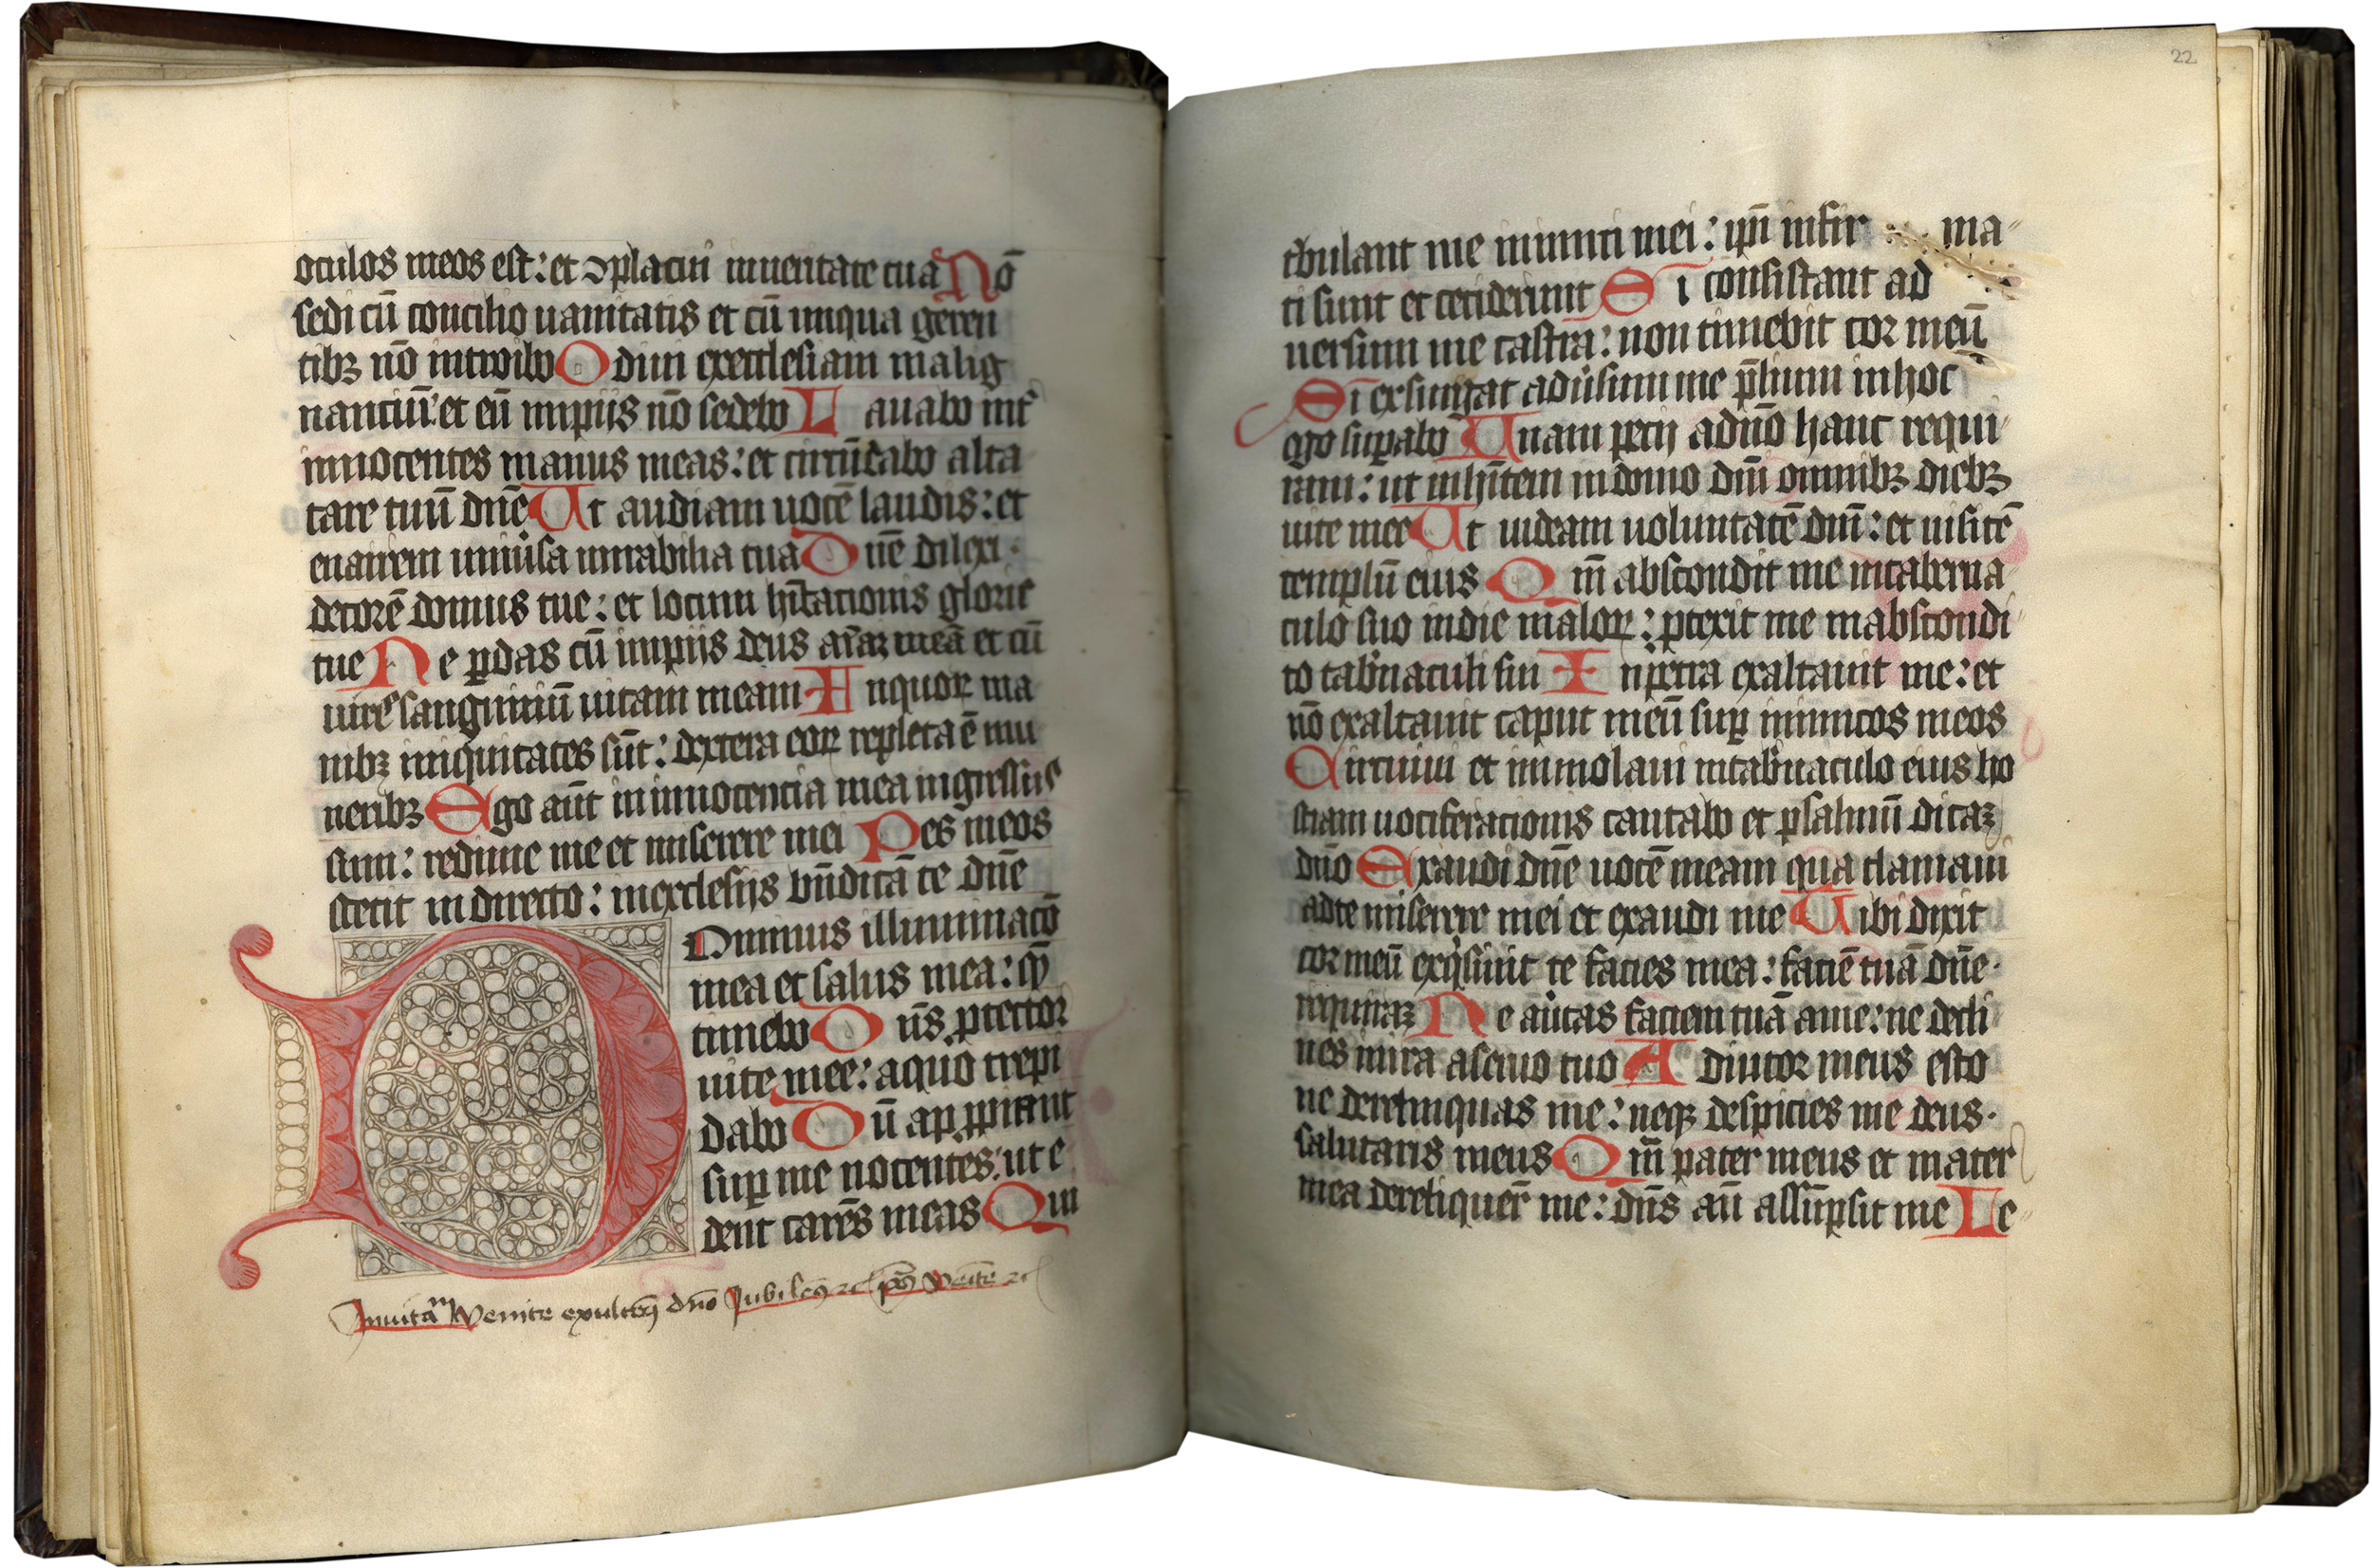 oculos meos est: et ↄplacui inueritate tua Nō
sedi cū concilio uanitatis et cū iniqua geren
tibꝫ nō introibo Odiui execclesiam malig
nanciū: et cū impiis nō sedebo Lauabo int̄
innocentes manus meas: et circūdabo alta
tare tuū dn̄e Ut audiam uocē laudis: et
enarrem uniūsa mirabilia tua Dn̄e dilexi
decorē domus tue: et locum hītacionis glorie
tue Ne ꝑdas cū impiis deus aīaꝫ meā et cū
uirꝭ sanguiniū uitam meam In quoꝝ ma
nibꝫ iniquitates sūt: dextera eoꝝ repleta ē mu
neribꝫ Ego aūt in innocencia mea ingressus
sum: redime me et miserere mei Pes meos
stetit in directo: inecclesijs bn̄dicā te dn̄e
Dominus illuminacō
mea et salus mea: q̄
timebo Dn̄s ꝓtector
uite mee: aquo trepi
dabo Dū apꝓpiant
suꝑ me nocentes: ut e
dent carn̄es meas Qui
Inuitam̄ Venite exultem9 dn̄o Jubilem9 ⁊c ps̄ Venite ⁊c
22
tribulant me inimici mei: ip̄i infir ma
ti sunt et ceciderunt Si consistant ad
uersum me castra: non timebit cor meū
Si exsurgat aduīsum me p̄lium inhoc
ego suꝑabo Unam pecij adn̄o hanc requi
ram: ut inhītem in domo dn̄i omnibꝫ diebꝫ
uite mee Ut uideam uoluntatē dn̄i: et uisitē
templū eius Qm̄ abscondit me intaberna
culo suo indie maloꝝ: ꝓtexit me inabscondi
to tab̄naculi sui In petra exaltauit me: et
nō exaltauit caput meū suꝑ inimicos meos
Circuiui et immolaui intab̄naculo eius ho
stiam uociferacionis cantabo et psalmū dicaꝫ
dn̄o Exaudi dn̄e uocē meam qua clamaui
adte miserere mei et exaudi me Tibi dixit
cor meū exqͥsiuit te facies mea: faciē tuā dn̄e
requiraꝫ Ne aūtas faciem tuā ame: ne decli
nes inira aseruo tuo Adiutor meus esto
ne derelinquas me: neqꝫ despicies me deus
salutaris meus Qm̄ pater meus et mater
mea dereliquer̄ me: dn̄s aū assūpsit me Le